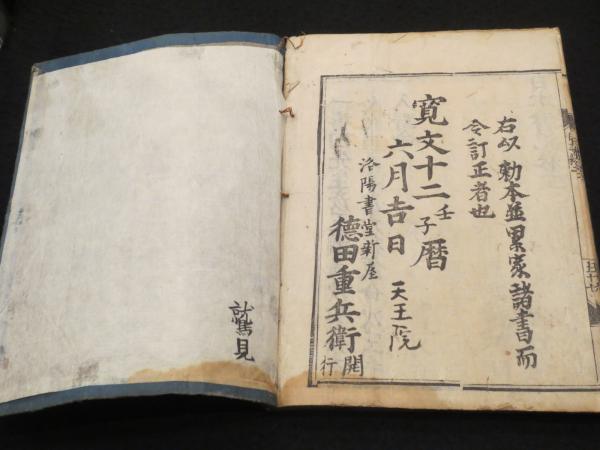 右以勅本並累家諸書而
令訂正者也
寛文十二壬子暦
六月吉日 天王院
洛陽書堂新屋
徳田重兵衛開行
鷲見